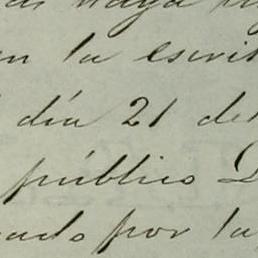 en la escrit
día 21 del
público D
ado por la